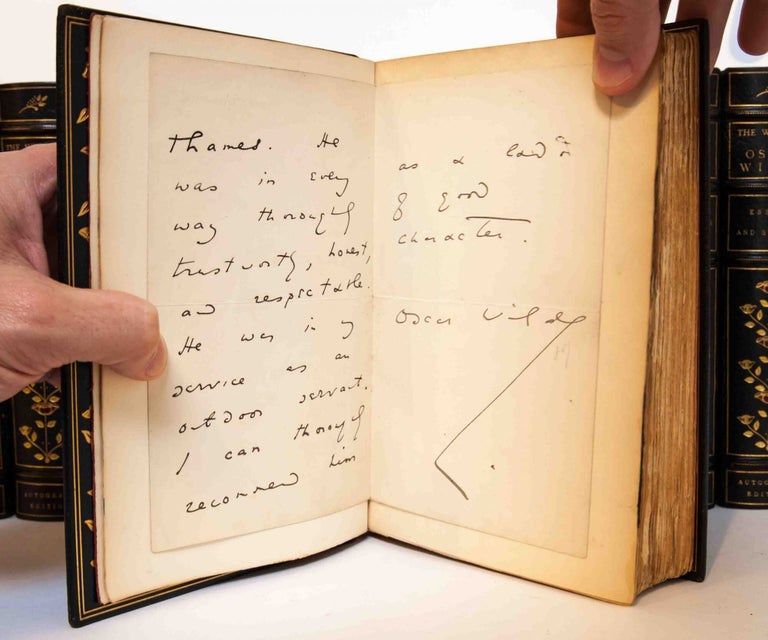 Thames. He
was in every
way thoroughly
trustworthy, honest,
and respectable.
He was in my
service as an
outdoor servant.
I can thoroughly
recommend him
as a
of good
character.
Oscar Wilde
AUTOGRA
EDITION
THE W
OS
WI
AND S
AUTOG
EDIT